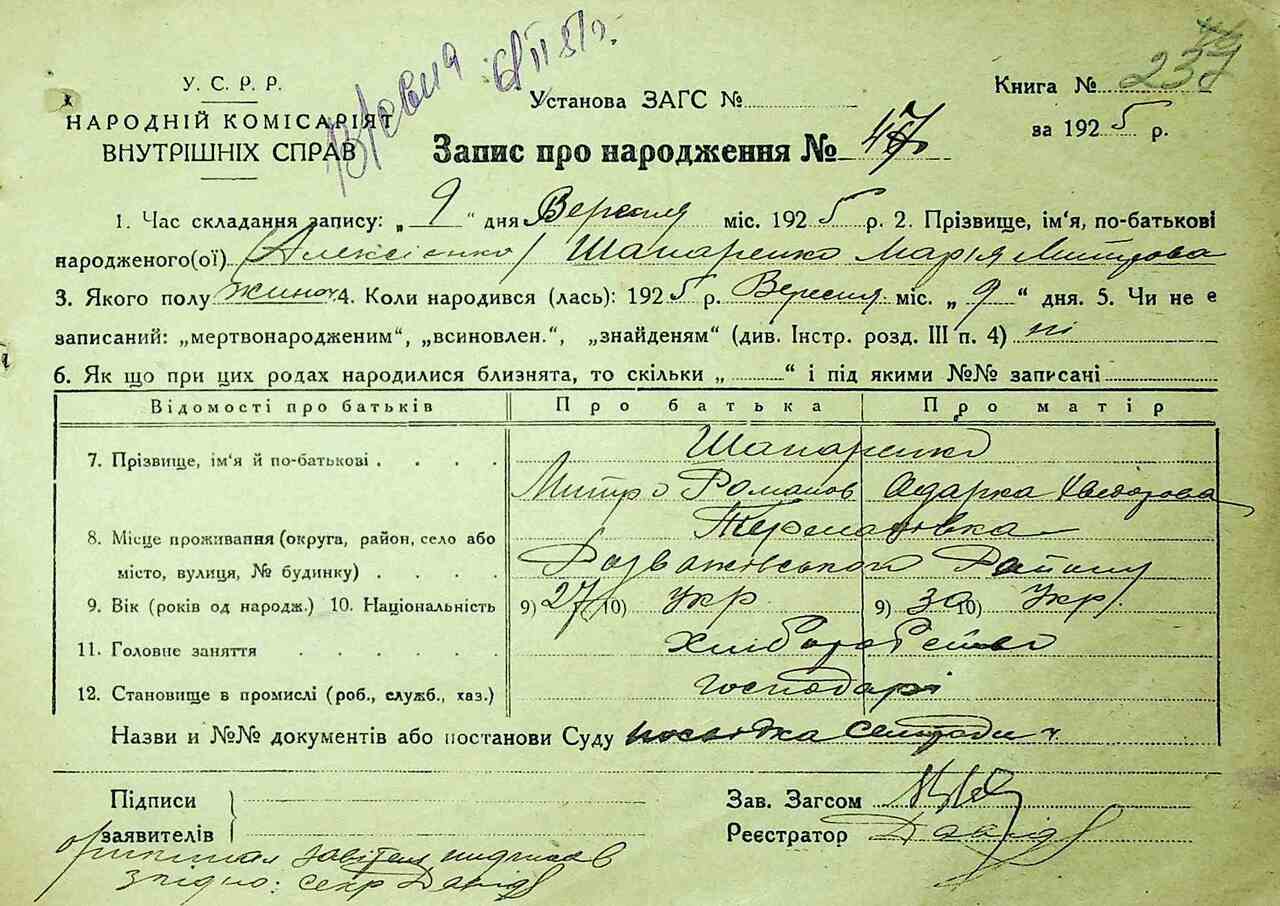 У. С. Р. Р.
НАРОДНІЙ КОМІСАРІЯТ
ВНУТРІШНІХ СПРАВ
Установа ЗАГС №
Книга № 237
за 1925 р.
Запис про народження № 47
1. Час складання запису: „ 9 “ дня Вересня міс. 1925 р. 2. Прізвище, ім'я, по-батькові
народженого(ої) Алексієнко / Шапаренко Марія Митрова
3. Якого полу жіноч 4. Коли народився (лась): 1925 р. Вересня міс. „ 9 “ дня. 5. Чи не є
записаний: „мертвонародженим“, „всиновлен.“, „знайденям“ (див. Інстр. розд. III п. 4) ні
6. Як що при цих родах народилися близнята, то скільки „ “ і під якими №№ записані
Відомості про батьків Про батька Про матір
7. Прізвище, ім'я й по-батькові Шапаренко
Митро Романов Одарка
8. Місце проживання (округа, район, село або
місто, вулиця, № будинку) Розважівського Району
9. Вік (років од народж.) 10. Національність 9) 27 10) Укр 9) 30 10) Укр.
11. Головне заняття
12. Становище в промислі (роб., служб., хаз.) господарі
Назви и №№ документів або постанови Суду посвідка
Підписи
заявителів
Зав. Загсом
Реєстратор
згідно: секр